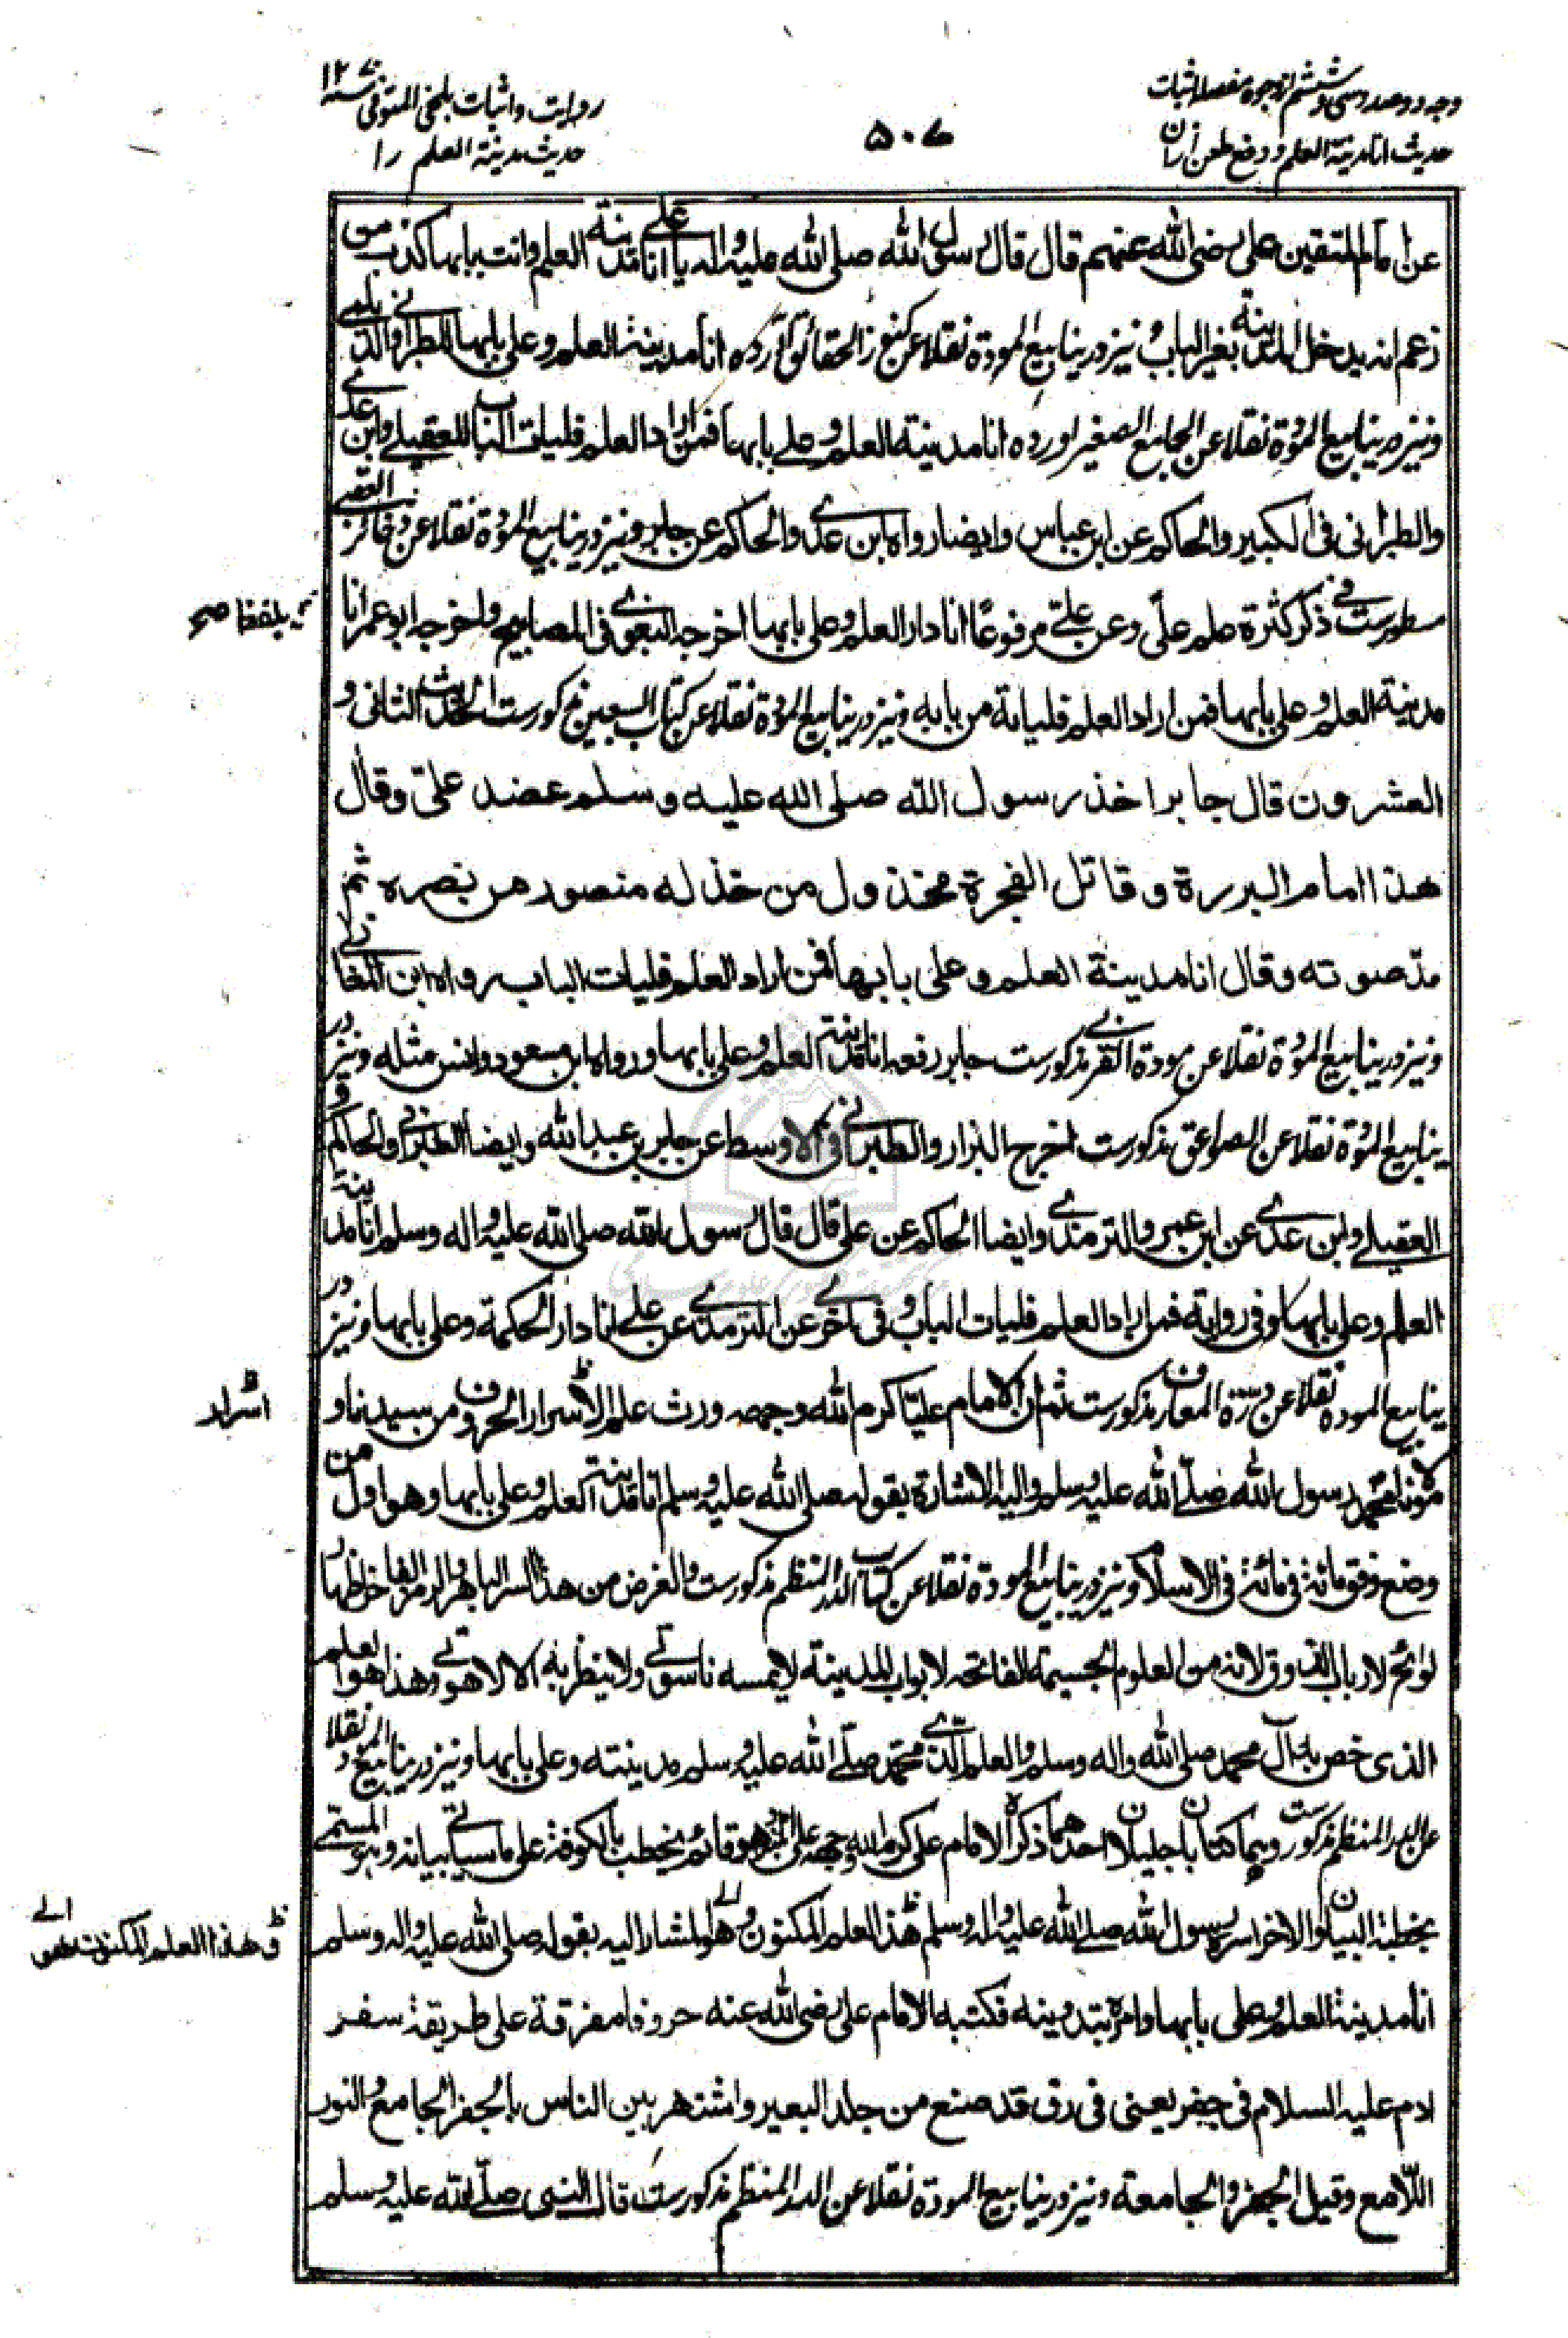 وجه دو صد و سی و ششم از وجوه مفصله اثبات
حدیث انا مدینة العلم و دفع طعن از ان
۵۰۷
روایت و اثبات بلخی المتوفی سنه
حدیث مدینة العلم را
عن امام المتقین علی رضی الله عنهم قال قال رسول الله صلی الله علیه واله یا علی انا مدینة العلم وانت بابها کذب من
زعم انه یدخل المدینة بغیر الباب و نیز در ینابیع المودة نقلا عن کنوز الحقائق آورده انا مدینة العلم وعلی بابها للطبرانی والدیلمی
ونیز در ینابیع المودة نقلا عن الجامع الصغیر اورده انا مدینة العلم وعلی بابها فمن اراد العلم فلیات الباب للعقیلی وابن عدی
والطبرانی فی الکبیر والحاکم عن ابن عباس وایضا رواه ابن عدی والحاکم عن جابر ونیز در ینابیع المودة نقلا عن ذخائر العقبی
مسطورست فی ذکر کثرة علم علی وعن علی مرفوعًا انا دار العلم وعلی بابها اخرجه البغوی فی المصابیح واخرجه ابو عمر انا
بلفظ صح
مدینة العلم وعلی بابها فمن اراد العلم فلیاته من بابه ونیز در ینابیع المودة نقلا عن کتاب السبعین مذکورست الحدیث الثانی و
العشرون قال جابر اخذ رسول الله صلی الله علیه وسلم عضد علیّ وقال
هذا امام البررة وقاتل الفجرة مخذول من خذله منصور من نصره ثم
مدّ صوته وقال انا مدینة العلم وعلی بابها فمن اراد العلم فلیات الباب رواه ابن المغازلی
ونیز در ینابیع المودة نقلا عن مودة القربی مذکورست جابر رفعه انا مدینة العلم وعلی بابها ورواه ابن مسعود وانس مثله ونیز در
ینابیع المودة نقلا عن الصواعق مذکورست اخرج البزار والطبرانی فی الاوسط عن جابر بن عبد الله وایضا الطبرانی والحاکم و
العقیلی وابن عدی عن ابن عمر والترمذی وایضا الحاکم عن علی قال قال رسول الله صلی الله علیه واله وسلم انا مدینة
العلم وعلی بابها وفی روایة فمن اراد العلم فلیات الباب وفی اخری عن الترمذی عن علی انا دار الحکمة وعلی بابها ونیز در
ینابیع المودة نقلا عن درّة المعارف مذکورست ثم ان الامام علیّا کرم الله وجهه ورث علم الاسرار الحروف من سیدنا و
اسرار
مولانا محمد رسول الله صلّی الله علیه وسلم والیه الاشارة بقوله صلی الله علیه وسلم انا مدینة العلم وعلی بابها وهو اول من
وضع وفق مائة فی مائة فی الاسلام ونیز در ینابیع المودة نقلا عن کتاب الدر المنظم مذکورست والغرض من هذا السر الباهر والرمز الفاخر اظهار
لوائح لارباب الذوق لانه من العلوم الجسیمة الفاتحه لابواب المدینة لا یمسه ناسوتی ولا ینظر به الا لاهوتی وهذا هو العلم
الذی خص به آل محمد صلی الله واله وسلم والعلم الذی محمّد صلّی الله علیه وسلم مدینته وعلی بابها ونیز در ینابیع المودة نقلا
عن الدر المنظم مذکورست وهما کتابان جلیلان احدهما ذکره الامام علی کرم الله وجهه علی المنبر وهو قائم یخطب بالکوفة علی ما سیاتی بیانه وهو المسمی
بخطبة البیان والاخر اسره رسول الله صلی الله علیه واله وسلم هذا العلم المکنون والی هو المشار الیه بقوله صلی الله علیه واله وسلم
هذا العلم المکنون
انا مدینة العلم وعلی بابها وامره بتدوینه فکتبه الامام علی رضی الله عنه حروفا مفرقة علی طریقة سفر
ادم علیه السلام فی جفر یعنی فی رق قد صنع من جلد البعیر واشتهر بین الناس بالجفر الجامع والنور
اللّامع وقیل الجفر والجامعة ونیز در ینابیع المودة نقلا عن الدر المنظم مذکورست قال النبی صلّی الله علیه وسلم